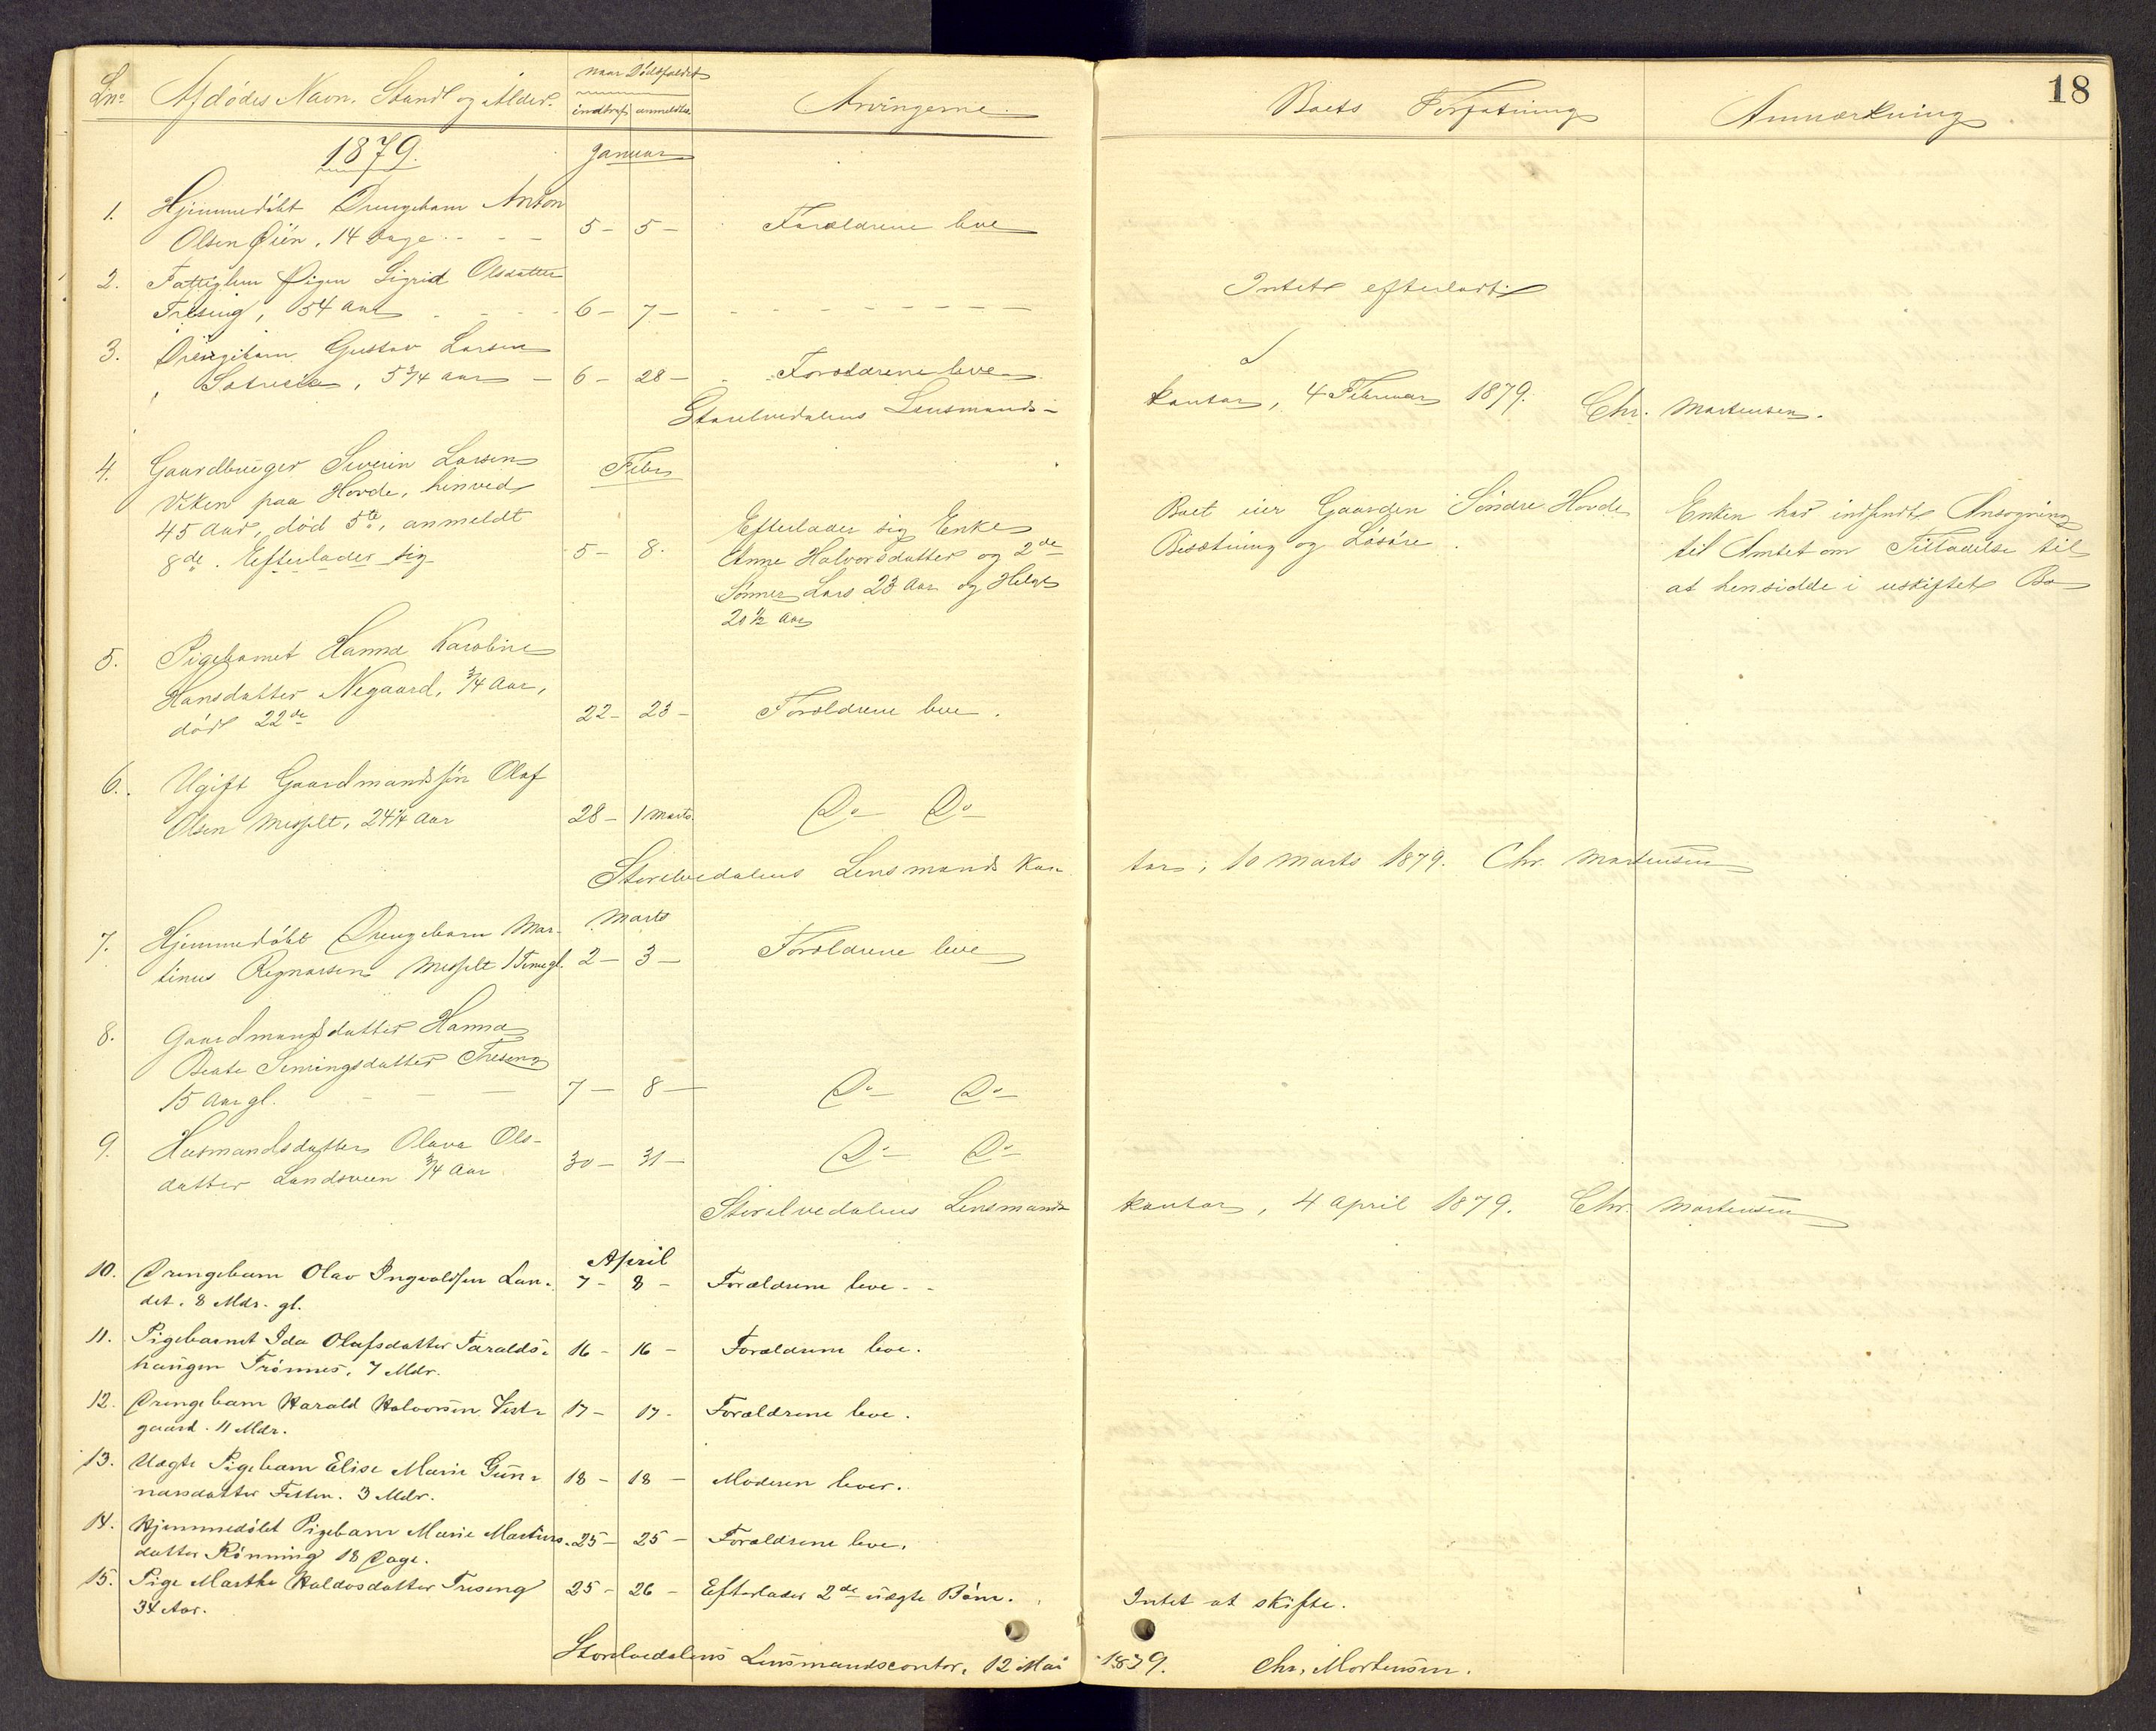 18
Lno Afdødes Navn, Stand og Alder. naar Dödsfaldet Arvingerne Boets Forfatning Anmærkning
indtraf anmeldtes
1879. Januar
1. Hjemmedöbt Drengebarn Anton
Olsen Øien, 14 Dage - - - 5 - 5 - Forældrene leve
2. Fattiglem Pigen Sigrid Olsdatter Intet efterladt
Treseng, 54 Aar - - - 6 - 7 - - - - - - - -
3. Drengebarn Gustav Larsen
5 3/4 Aar - 6 - 28 - Forældrene leve
Storelvedalens Lensmands- kontor, 4 Februar 1879. Chr. Mortensen.
4. Gaardbruger Severin Larsen Febr
Viken paa Hovde, henved Boet eier Gaarden Söndre Hovde Enken har indsendt Ansøgning
45 Aar, död 5te, anmeldt Efterlader sig Enke Besætning og Lösöre. til Amtet om Tilladelse til
8de. Efterlader sig 5 - 8. Anne Halvorsdatter og 2de at hensidde i uskiftet Bo
Sönner Lars 23 Aar og Helge
20 1/2 Aar
5. Pigebarnet Hanna Karoline
Hansdatter Negaard, 3/4 Aar,
död 22de 22 - 23 - Forældrene leve.
6. Ugift Gaardmandssön Olaf
Olsen Messelt, 24 1/4 Aar 28 - 1 Marts. Do Do
Storelvedalens Lensmands Kon- tor, 10 Marts 1879. Chr. Mortensen
Marts
7. Hjemmedöbt Drengebarn Mar-
tinus Regnarsen Messelt 1 Time gl. 2 - 3 - Forældrene leve
8. Gaardmandsdatter Hanna
Beate Semingsdatter Treseng
15 Aar gl. - - - 7 - 8 - Do Do
9. Husmandsdatter Olava Ols-
datter Landsveen 3/4 Aar 30 - 31 - Do Do
Storelvedalens Lensmands kontor, 4 April 1879. Chr. Mortensen
April
10. Drengebarn Olav Ingvaldsen Lan- 7 - 8 - Forældrene leve - -
det. 8 Mdr. gl.
11. Pigebarnet Ida Olafsdatter Taralds- 16 - 16 - Forældrene leve.
haugen Trönnes. 7 Mdr.
12. Drengebarn Harald Halvorsen Vest- 17 - 17 - Forældrene leve.
gaard. 11 Mdr.
13. Uægte Pigebarn Elise Marie Gun- 18 - 18 - Moderen lever.
narsdatter. 3 Mdr.
14. Hjemmedöbt Pigebarn Marie Martins- 25 - 25 - Forældrene leve.
datter Rönning 18 Dage.
15. Pige Marthe Haldosdatter Treseng 25 - 26 - Efterlader 2de uægte Börn. Intet at skifte.
34 Aar.
Storelvedalens Lensmandscontor, 12 Mai 1879. Chr. Mortensen.